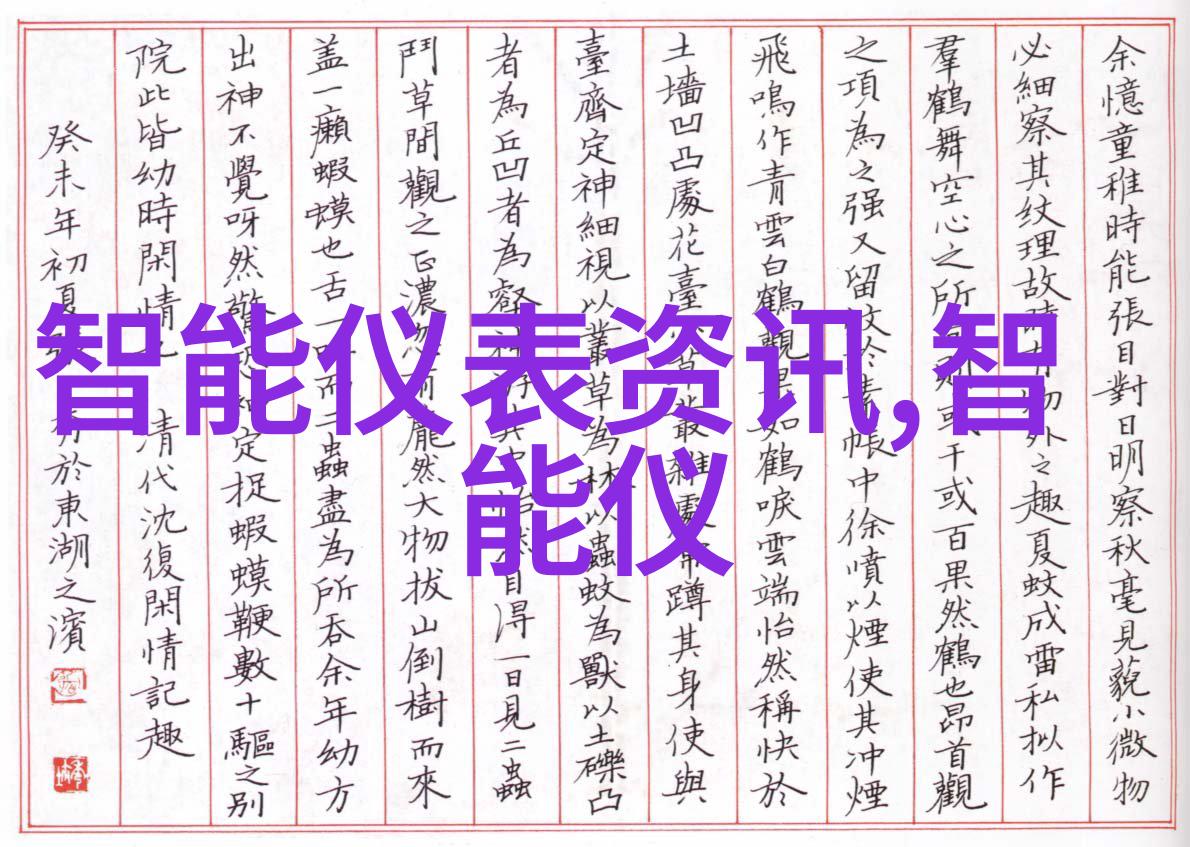 余憶童稚時能張目對日明察秋毫見藐小微物
必細察其纹理故時有物外之趣夏蚊成雷私拟作
羣鶴舞空心之所向則或千或百果然鶴也昂首觀
之項為之强又留蚊於素帳中徐噴以煙使其冲煙
飛鳴作青雲白鶴觀果如鶴唳雲端怡然稱快於
土墻凹凸處花臺小草叢雜處常蹲其身使與
臺齊定神細視以叢草為林以蟲蚊為獸以土礫凸
者為丘凹者為壑神游其中怡然自得一日見二蟲
鬥草間觀之正濃忽有龐然大物拔山倒樹而來
盖一癩蝦蟆也舌一吐而二蟲盡為所吞余年幼方
出神不覺呀然驚恐神定捉蝦蟆鞭數十驅之別
院此皆幼時閑情也 清代沈復閑情記趣
癸未年初夏於東湖之濱
智能仪表资讯,智
能仪